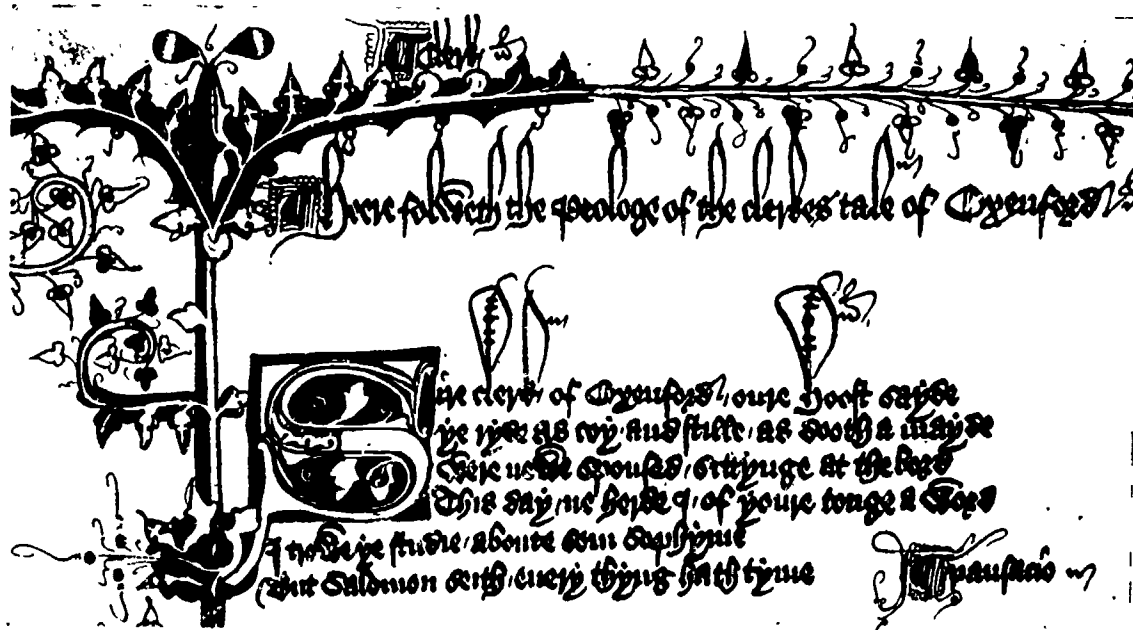 Clerk
Heere folweth the Prologe of the clerkes tale of Oxenford
Sire clerk of Oxenford / oure hoost sayde
ye ryde as coy and stille / as dooth a mayde
Were newe spoused / sittynge at the bord
This day ne herde I / of youre tonge a word
I trowe ye studie / aboute som sophyme
But Salomon seith / euery thyng hath tyme